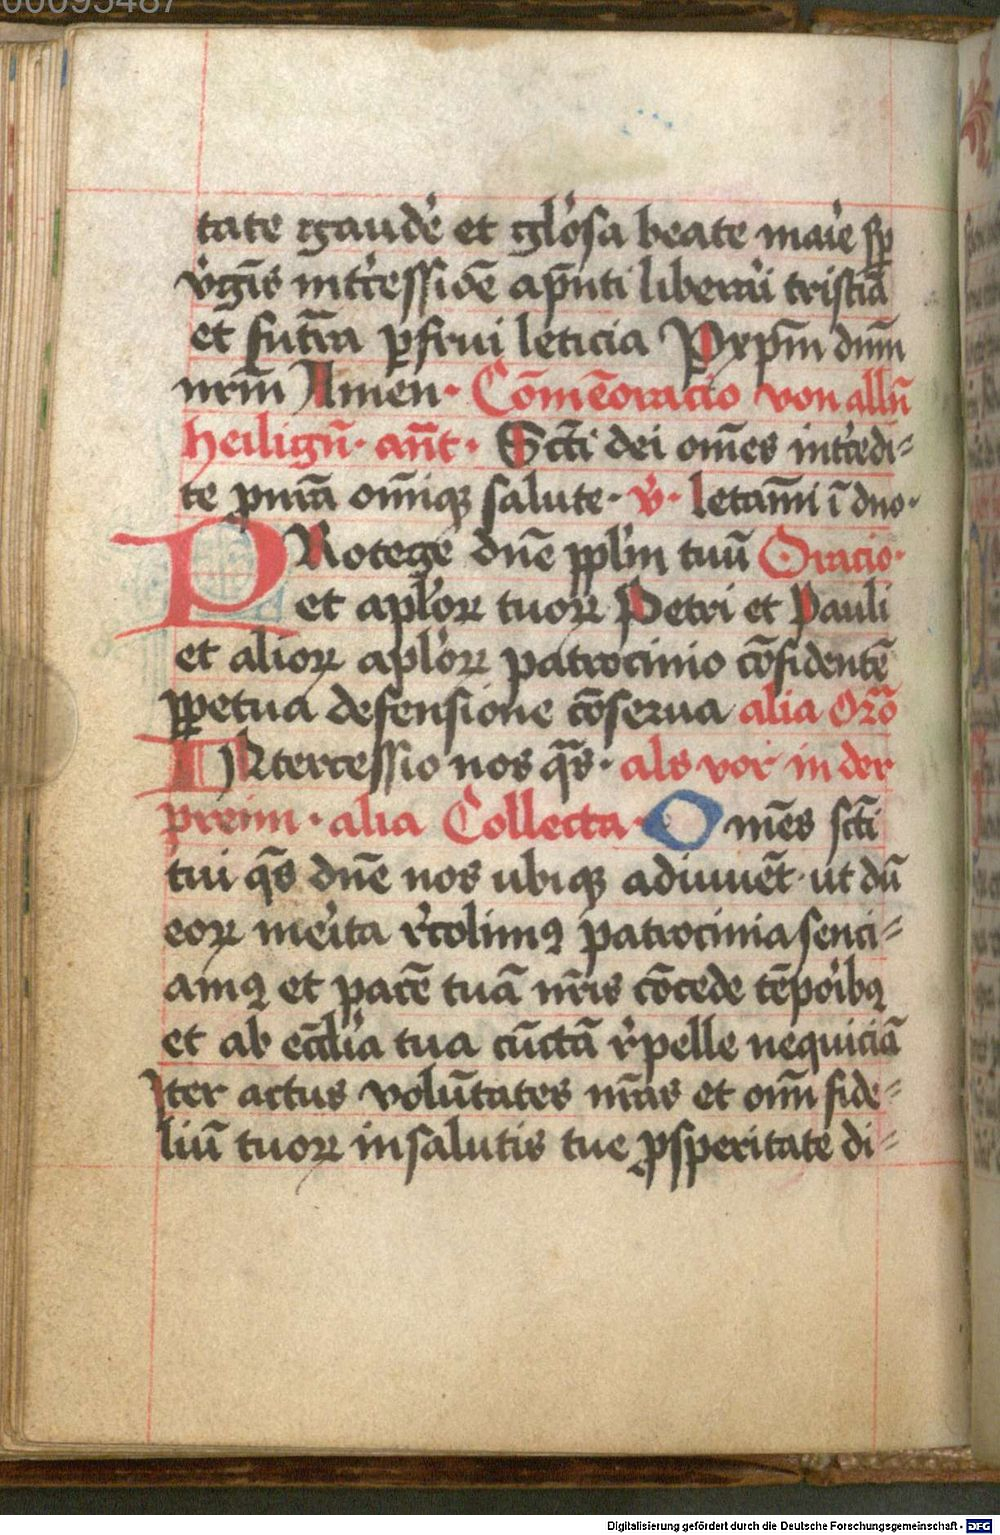 00095487
tate ꝛgaudẻ et glo̾sa beate maie̾ ſꝑ
v̾gīs int̾cessiōe ap̄nti liberari tristiā
et fut̄ra ꝑfrui leticia Ꝑ xpm̄ dnm̄
nrm̄ Amen. Com̄ēoracio von alln̄
heiligū. ant̄. Scti dei om̄es int̾cedi-
te ꝓ nr̄a omīqꝫ salute. v̾. letam̄i ī dno.
PRotege dn̄e pplm̄ tuū Oracio.
et aplo̾ꝝ tuoꝝ Petri et Pauli
et alioꝝ aplo̾ꝝ patrocinio cōfidentē
ꝑpetua defensione cōserua alia Orō
INtercessio nos qs̄. als vor in der
preim. alia Collecta. Omēs scti
tui qs̄ dn̄e nos ubiqꝫ adiuuēt. ut dū
eoꝝ me̾ita r̾colimꝰ patrocinia senci-
amꝰ et pacē tuā nr̄is cōcede tēpo̾ibꝰ
et ab ecclia̾ tua cūctā r̾pelle nequiciā
Iter actus volūtates nr̄as et om̄ fide-
liū tuoꝝ in salutis tue ꝓsperitate di-
Digitalisierung gefördert durch die Deutsche Forschungsgemeinschaft - DFG